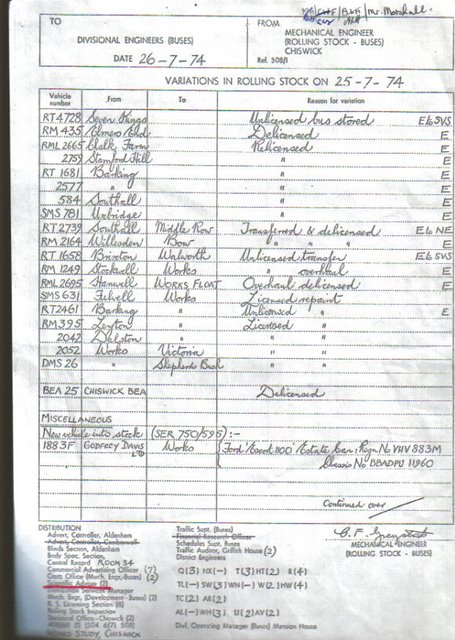 Mr. Marshall.
TO FROM
DIVISIONAL ENGINEERS (BUSES) MECHANICAL ENGINEER
(ROLLING STOCK - BUSES)
CHISWICK
DATE 26-7-74 Ref. 508/1
VARIATIONS IN ROLLING STOCK ON 25-7-74
Vehicle number From To Reason for variation
RT 4728 Seven Kings Unlicensed bus stored E to SVS
RM 435 Elmers End Delicensed E
RML 2665 Chalk Farm Relicensed E
2759 Stamford Hill " E
RT 1681 Barking " E
2577 " " E
584 Southall " E
SMS 781 Uxbridge " E
RT 2739 Southall Middle Row Transferred & delicensed E to NE
RM 2164 Willesden Bow " " " E
RT 1658 Brixton Walworth Unlicensed transfer E to SVS
RM 1249 Stockwell Works " overhaul E
RML 2695 Hanwell WORKS FLOAT Overhaul delicensed E
SMS 631 Fulwell Works Licensed repaint
RT 2461 Barking " Unlicensed " E
RM 395 Leyton " Licensed "
2042 Dalston " " "
2052 Works Victoria " "
DMS 26 " Shepherds Bush " "
BEA 25 CHISWICK BEA Delicensed
MISCELLANEOUS
New vehicle into stock (SER 750/595) :-
1883F GODFREY DAVIS LTD Works Ford 'Escort 1100' Estate Car: Regn. No VHV 883M
Chassis No BBADPU 11960
Continued over
MECHANICAL ENGINEER
(ROLLING STOCK - BUSES)
DISTRIBUTION
Advert, Controller, Aldenham
Advert, Controller, Camberwell
Blinds Section, Aldenham
Body Spcs, Section,
Central Record ROOM 34
Commercial Advertising Officer (7)
Costs Office (Mech. Engr-Buses) (2)
Scientific Adviser (2)
Distribution Services Manager
Mech. Engr. (Development - Buses) (2)
R. S. Licensing Section (8)
Rolling Stock Inspection
Statistical Office - Chiswick (2)
WORKS STUDY, CHISWICK
Traffic Supt. (Buses)
Financial Research Officer
Schedules Supt. Buses
Traffic Auditor, Griffith House (2)
District Engineers
Q(3) NX(-) T(3) HT(2) R(4)
TL(-) SW(3) WN(-) W(2) HW(4)
TC(2) AR(2)
AL(-) WH(3) U(2) AV(2)
Divl. Operating Manager (Buses) Mansion House